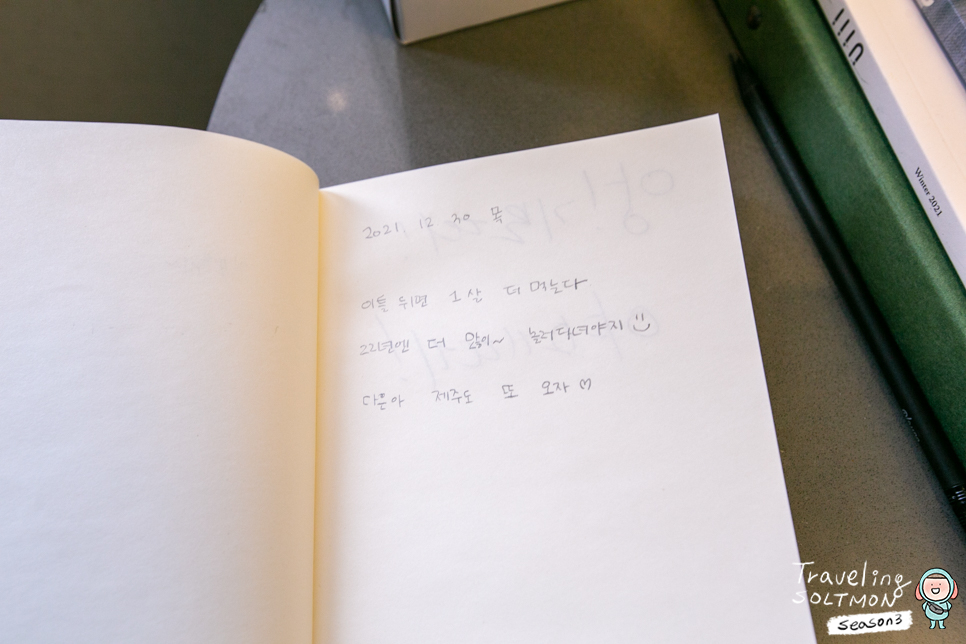 2021. 12 30 목
이틀 뒤면 1살 더 먹는다
22년엔 더 많이~ 놀러다녀야지
다은아 제주도 또 오자 ♡
iiin
Winter 2021
Traveling
SOLTMON
season3